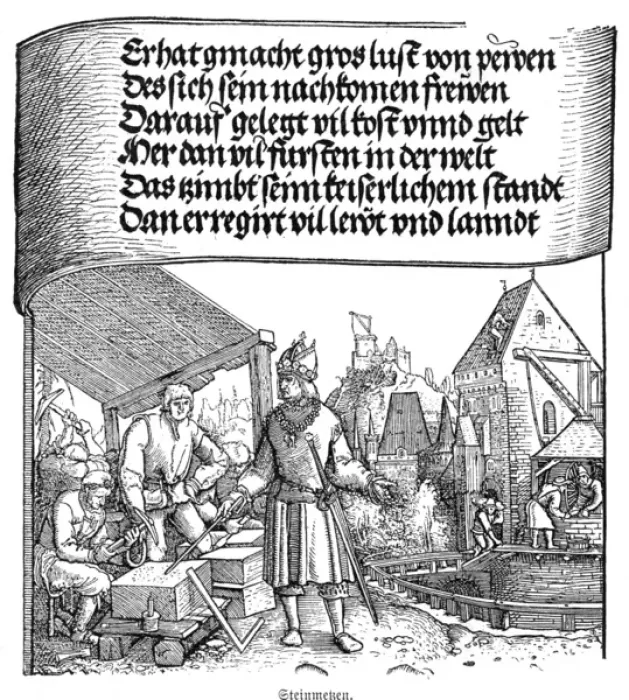 Er hat gmacht gros lust von pewen
Des sich sein nachkomen frewen
Darauf gelegt vil kost vnnd gelt
Mer dan vil fursten in der welt
Das tzimbt seinn keiserlichem standt
Dan er regirt vil lewt vnd lanndt
Steinmetzen.